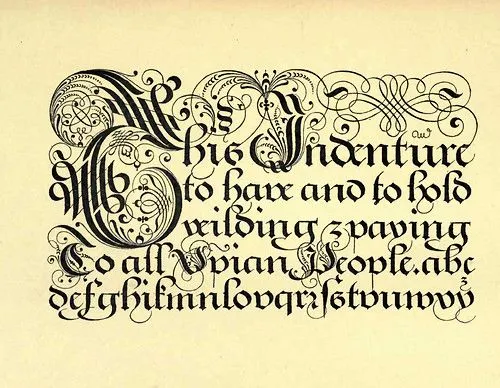 This Indenture w
to have and to hold
yeilding & paying
To all Xpian People. abc
defghikmnlopqrꝛſstvuwxyz